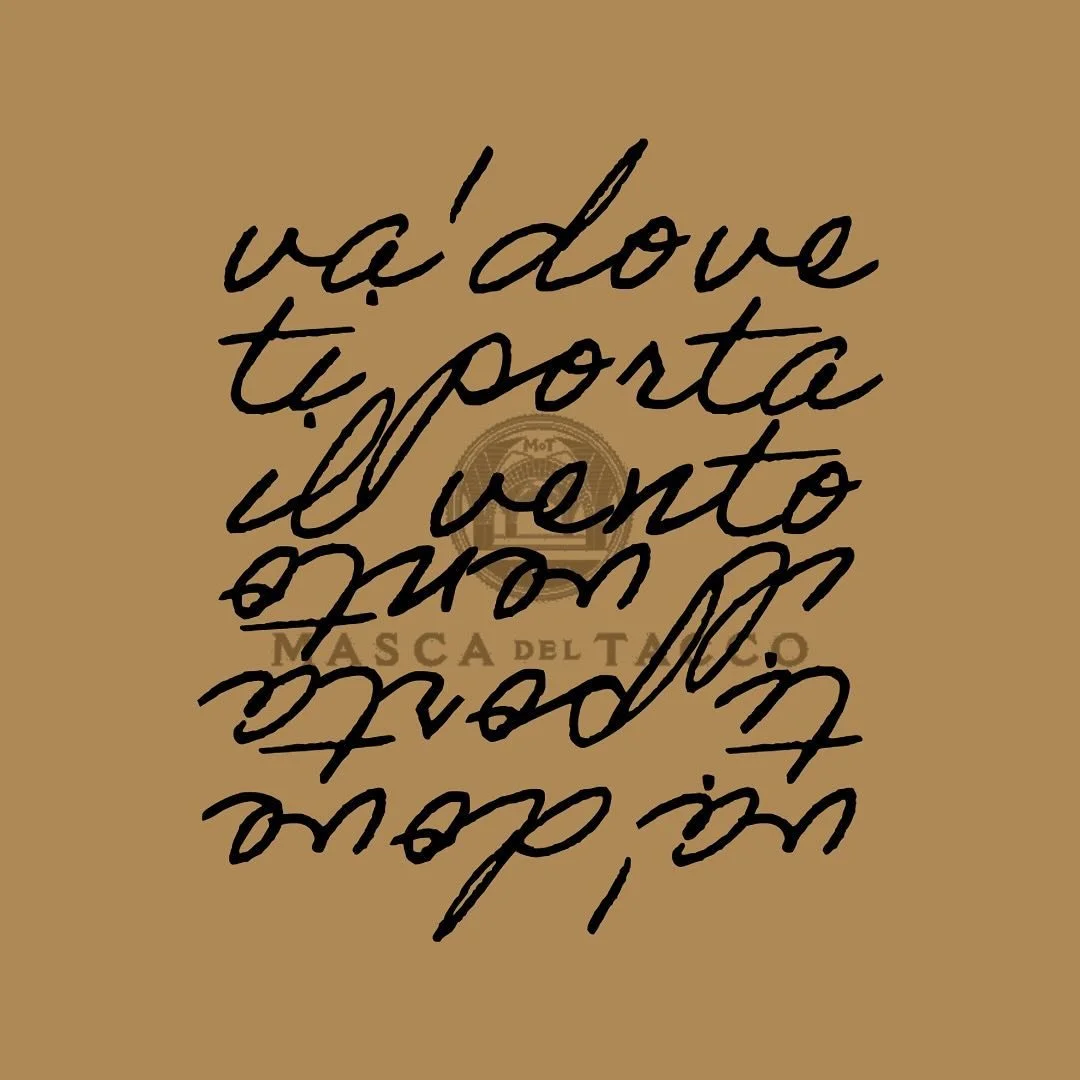 va' dove
ti porta
il vento
MoT
MASCA DEL TACCO
va' dove
ti porta
il vento